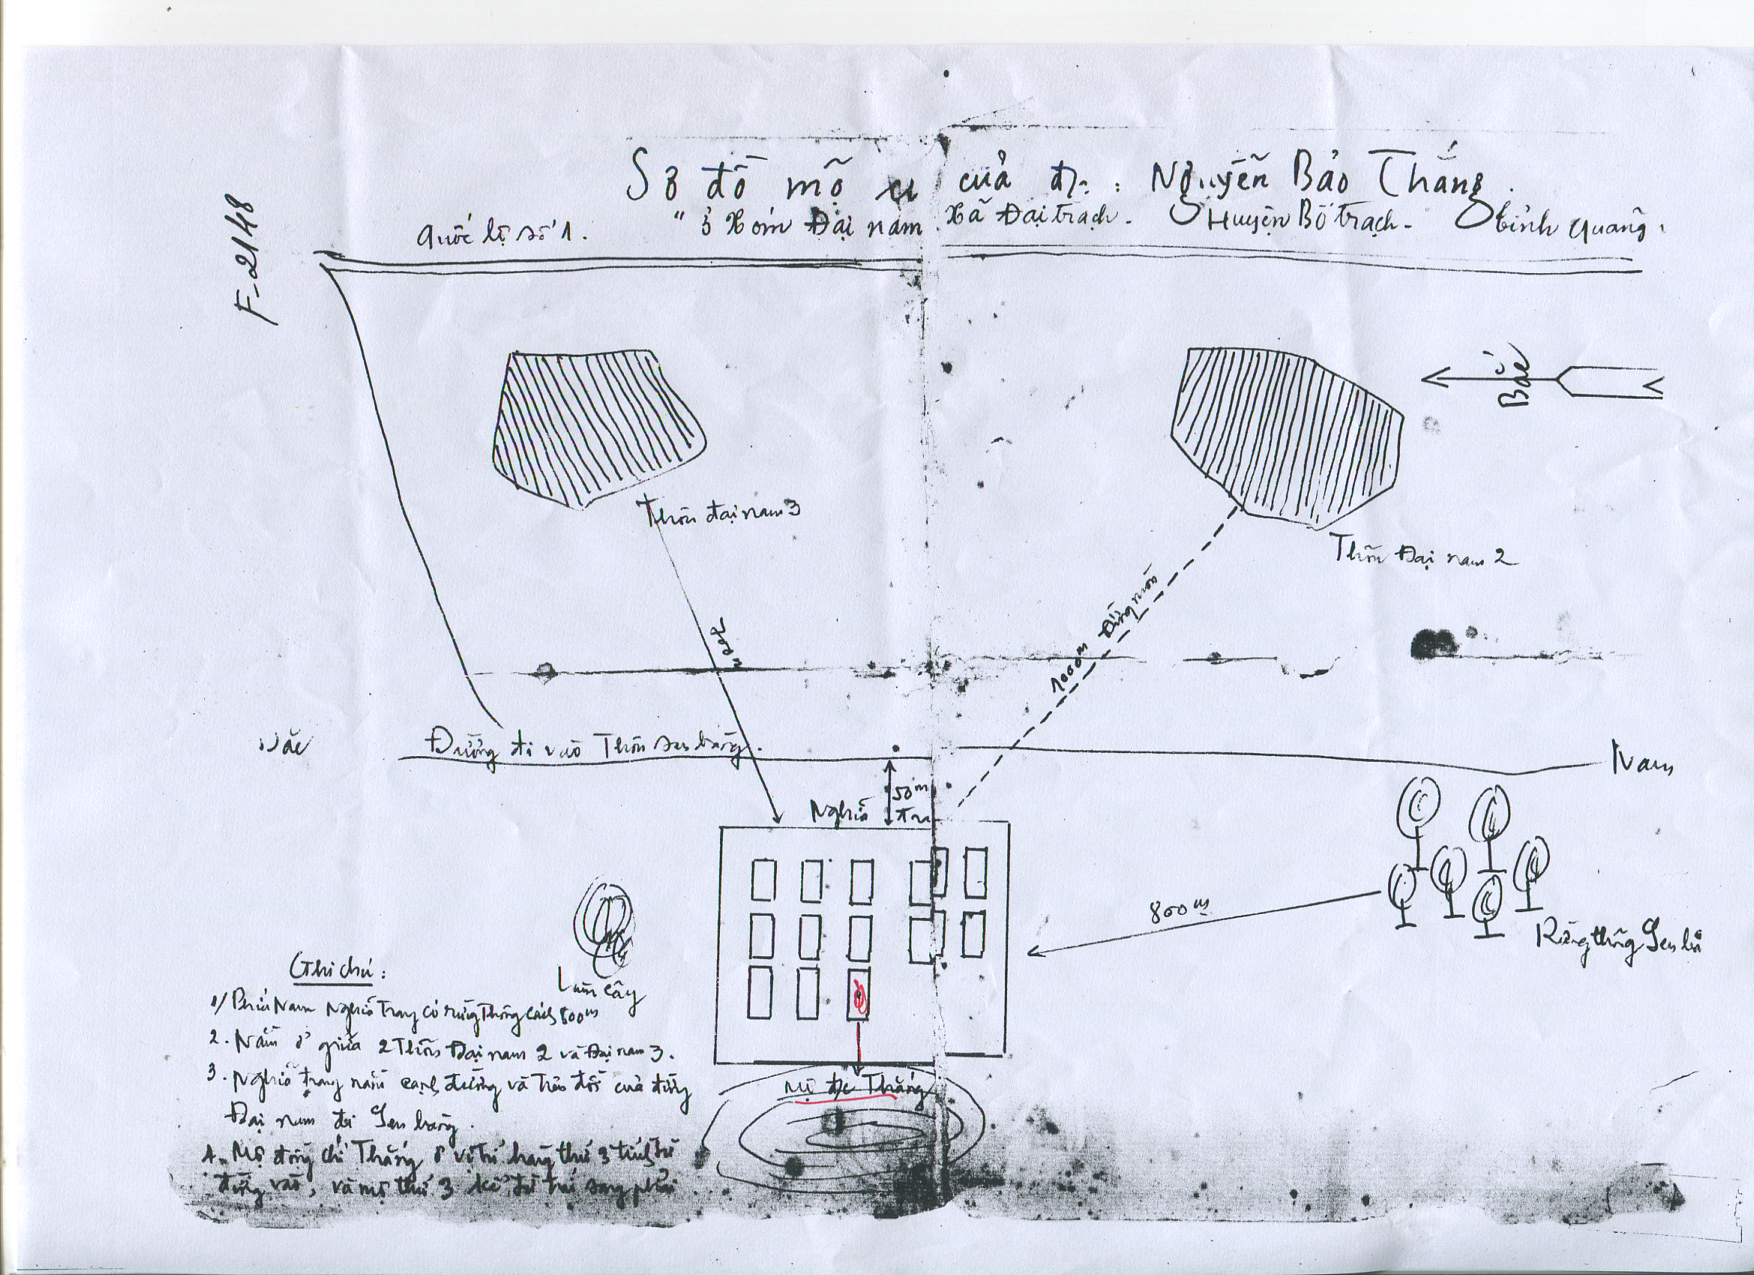 Sơ đồ mộ của đ/c: Nguyễn Bảo Thắng.
Quốc lộ số 1.
"ở Xóm Đại nam Xã Đại trạch. Huyện Bố trạch. tỉnh Quảng
F-2148
Bắc
Thôn đại nam 3
Thôn Đại nam 2
1000m Đường mòn
Đường đi vào Thôn Sen bàng.
Nam
50m
Nghĩa
800m
Rừng thông Sen
Lùm cây
Ghi chú:
1/ Phía Nam Nghĩa Trang có rừng thông cách 800m
2. Nằm ở giữa 2 Thôn Đại nam 2 và Đại nam 3.
3. Nghĩa trang nằm cạnh đường và trên đồi của đường
Đại nam đi Sen bàng.
4. Mộ đồng chí Thắng ở vị trí hàng thứ 3 tính từ
đường vào, và mộ thứ 3 kể từ trái sang phải
Mộ đ/c Thắng